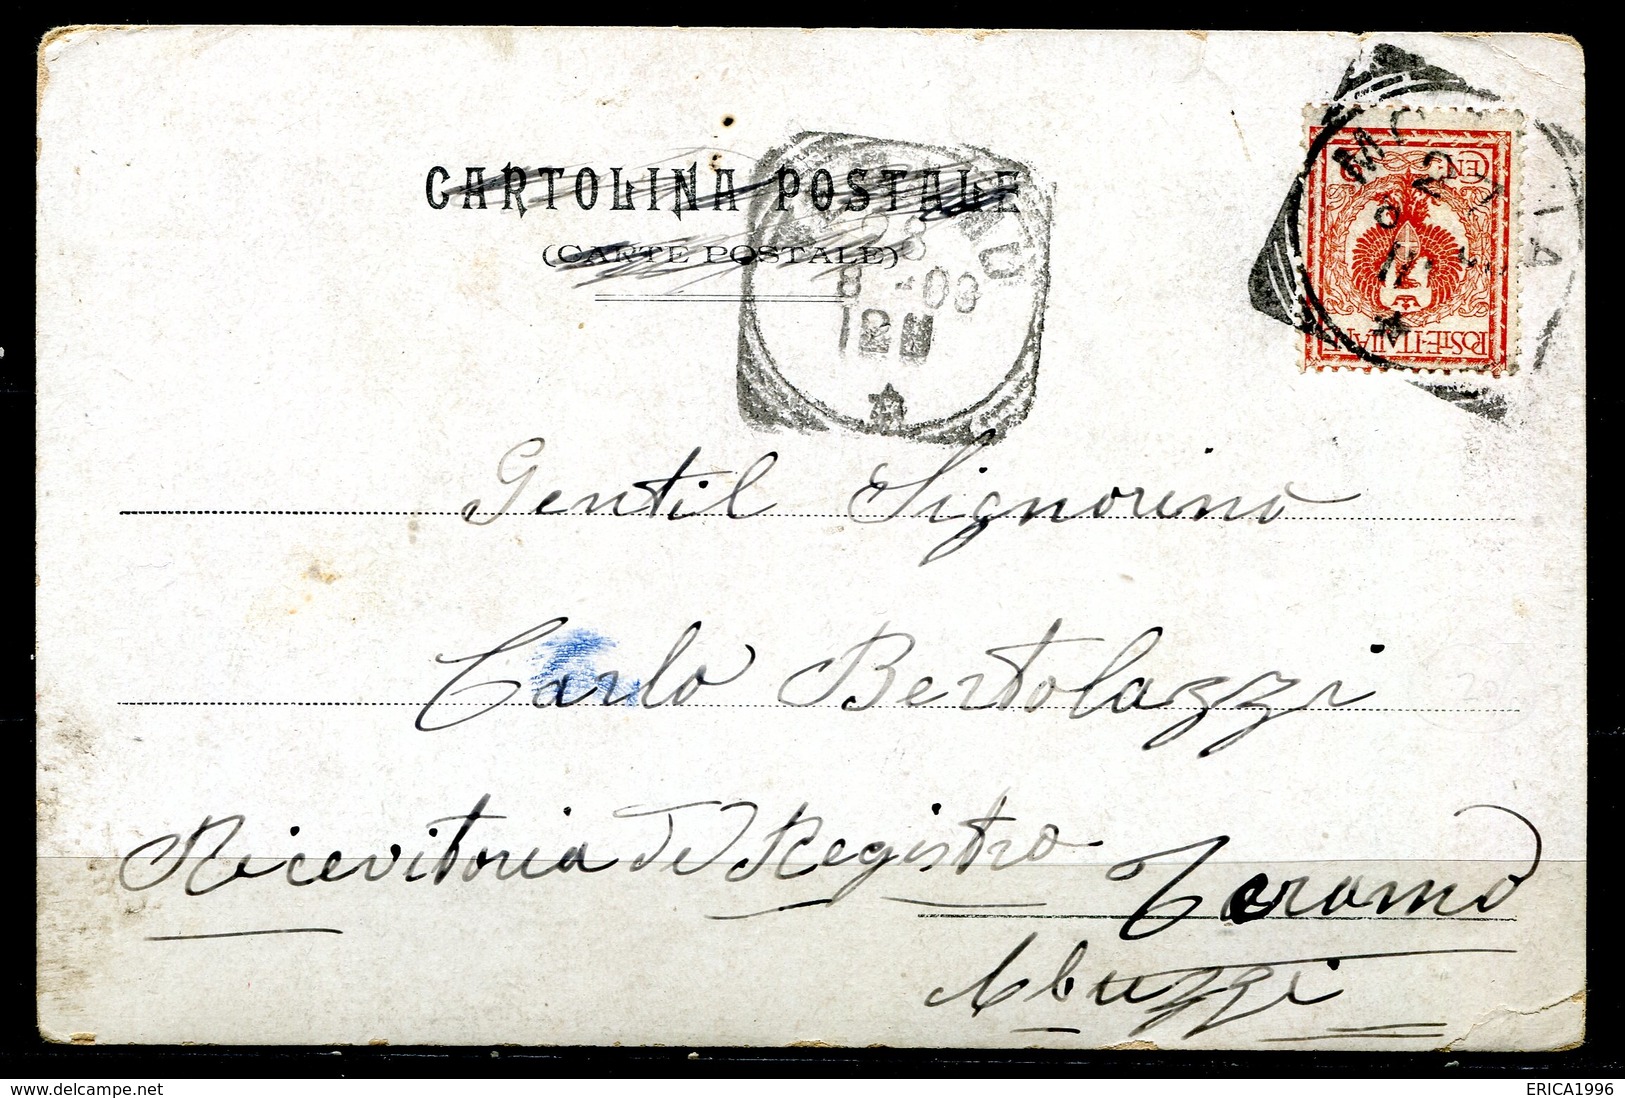 CARTOLINA POSTALE
(CARTE POSTALE)
8 - 03
12 M
CEN 2
POSTE·ITALIANE
Gentil Signorino
Carlo Bertolazzi
Ricevitoria del Registro
Teramo
Abuzzi
ERICA1996